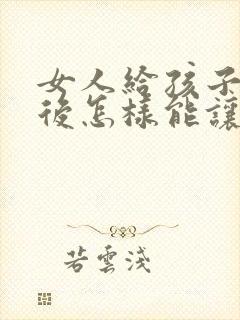 女人給孩子
後怎樣能讓
若雲淺